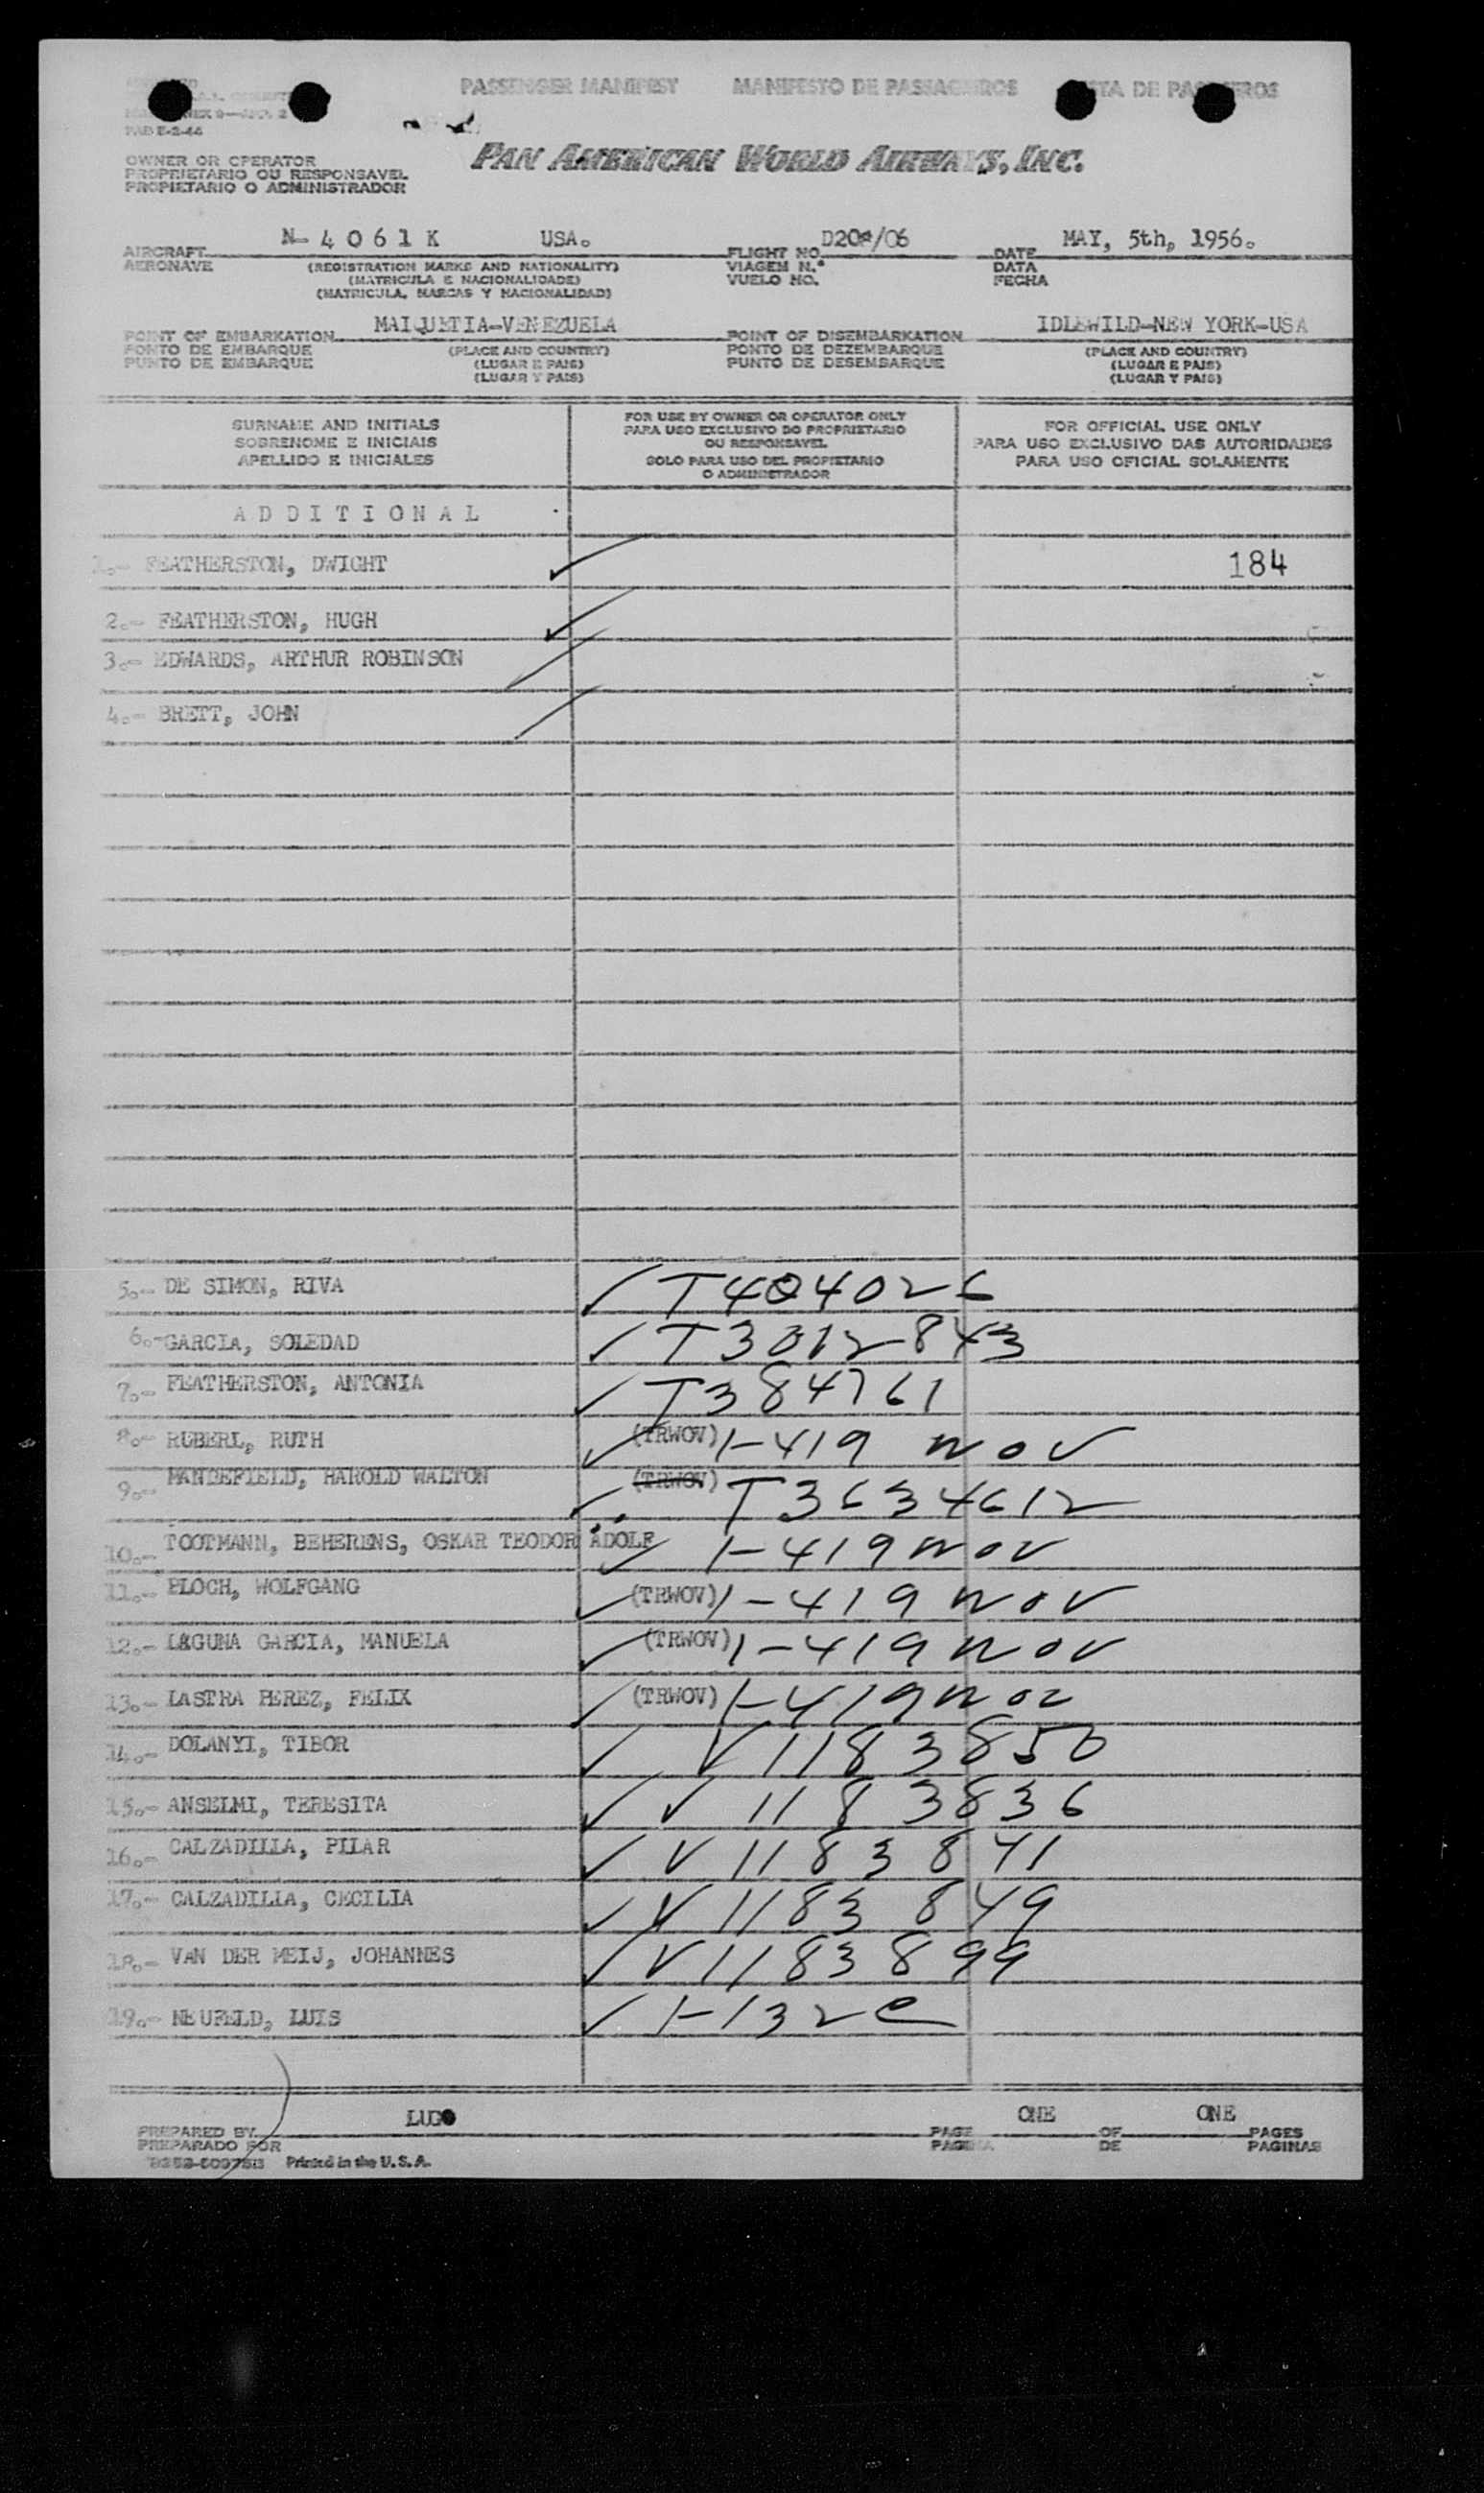 PASSENGER MANIFEST MANIFESTO DE PASSAGEIROS LISTA DE PASAJEROS
PAB E-2-44
OWNER OR OPERATOR
PROPRIETARIO OU RESPONSAVEL
PROPIETARIO O ADMINISTRADOR
PAN AMERICAN WORLD AIRWAYS, INC.
AIRCRAFT N- 4 0 6 1 K USA. FLIGHT NO. /06 DATE MAY, 5th, 1956.
AERONAVE (REGISTRATION MARKS AND NATIONALITY) VIAGEM N.º DATA
(MATRICULA E NACIONALIDADE) VUELO NO. FECHA
(MATRICULA, MARCAS Y NACIONALIDAD)
POINT OF EMBARKATION MAIQUETIA-VENEZUELA POINT OF DISEMBARKATION IDLEWILD-NEW YORK-USA
PONTO DE EMBARQUE (PLACE AND COUNTRY) PONTO DE DEZEMBARQUE (PLACE AND COUNTRY)
PUNTO DE EMBARQUE (LUGAR E PAIS) PUNTO DE DESEMBARQUE (LUGAR E PAIS)
(LUGAR Y PAIS) (LUGAR Y PAIS)
SURNAME AND INITIALS
SOBRENOME E INICIAIS
APELLIDO E INICIALES
FOR USE BY OWNER OR OPERATOR ONLY
PARA USO EXCLUSIVO DO PROPRIETARIO
OU RESPONSAVEL
SOLO PARA USO DEL PROPIETARIO
O ADMINISTRADOR
FOR OFFICIAL USE ONLY
PARA USO EXCLUSIVO DAS AUTORIDADES
PARA USO OFICIAL SOLAMENTE
A D D I T I O N A L
1.- FEATHERSTON, DWIGHT 184
2.- FEATHERSTON, HUGH
3.- EDWARDS, ARTHUR ROBINSON
4.- BRETT, JOHN
5.- DE SIMON, RIVA T404026
6.- GARCIA, SOLEDAD T3012843
7.- FEATHERSTON, ANTONIA T384761
8.- RUBERL, RUTH (TRWOV) 1-419 WOV
9.- HAROLD WALTON (TRWOV) T3634612
10.- TOOTMANN, BEHERENS, OSKAR TEODOR ADOLF 1-419 WOV
11.- BLOCH, WOLFGANG (TRWOV) 1-419 WOV
12.- LAGUNA GARCIA, MANUELA (TRWOV) 1-419 WOV
13.- LASTRA PEREZ, FELIX (TRWOV) 1-419 WOV
14.- DOLANYI, TIBOR V1183850
15.- ANSELMI, TERESITA V 1183836
16.- CALZADILLA, PILAR V 1183841
17.- CALZADILLA, CECILIA V 1183849
18.- VAN DER MEIJ, JOHANNES V1183899
19.- NEUFELD, LUIS 1-132
PREPARED BY LUGO PAGE ONE OF ONE PAGES
PREPARADO POR PAGINA DE PAGINAS
Printed in the U.S.A.